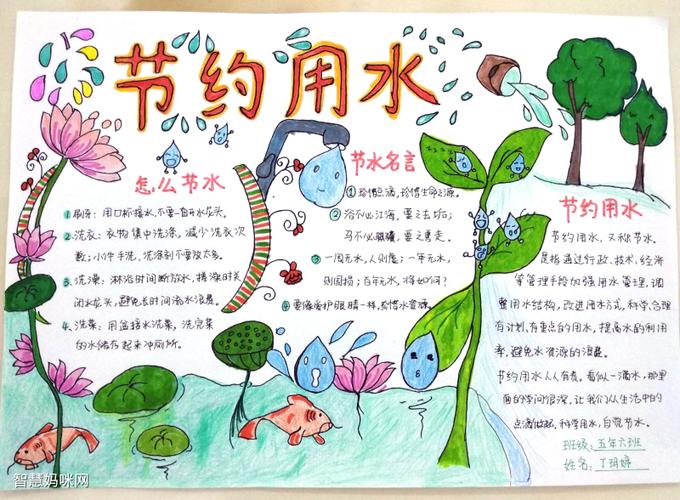 节约用水
怎么节水
1. 刷牙：用口杯接水，不要一直开水龙头。
2. 洗衣：衣物集中洗涤，减少洗衣次
数；小件手洗，洗涤剂不要放太多。
3. 洗澡：淋浴时间断放水，搓澡时关
闭水龙头，避免长时间浴水浪费。
4. 洗菜：用盆接水洗菜，洗完菜
的水储存起来冲厕所。
节水名言
① 珍惜点滴，珍惜生命之源。
② 浴不必江海，要之去垢；
马不必骐骥，要之善走。
③ 一周无水，人则危；一年无水，
则国损；百年无水，将如何？
④ 要像爱护眼睛一样，珍惜水资源。
节约用水
节约用水，又称节水。
是指通过行政、技术、经济
等管理手段加强用水管理，调
整用水结构，改进用水方式，科学、合理
有计划、有重点的用水，提高水的利用
率，避免水资源的浪费。
节约用水人人有责。看似一滴水，那里
面的学问很深，让我们从生活中的
点滴做起，科学用水，自觉节水。
班级：五年六班
姓名：丁玥婷
智慧妈咪网